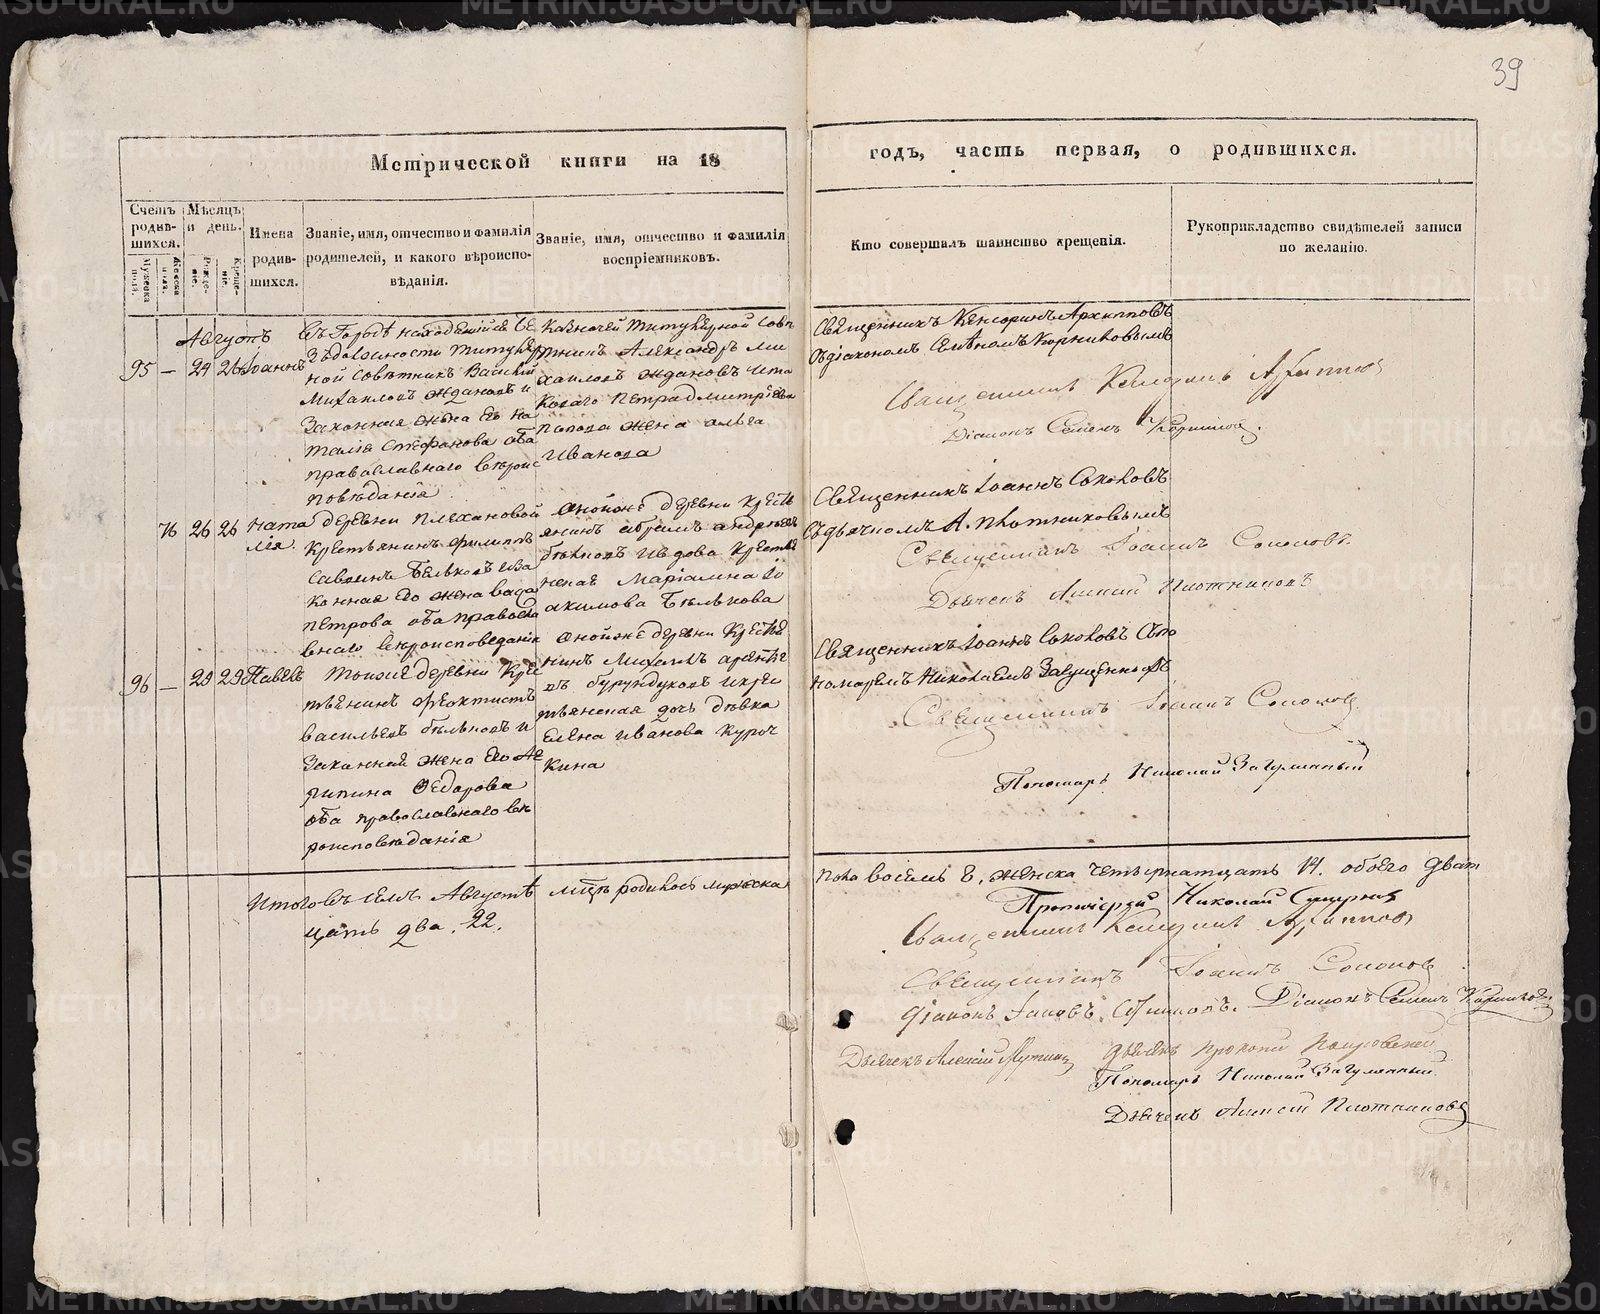 39
Метрической книги на 18
годъ, часть первая, о родившихся.
Счетъ родив-шихся.
Мѣсяцъ и день.
Имена родив-шихся.
Званіе, имя, отчество и фамилія родителей, и какого вѣроиспо-вѣданія.
Званіе, имя, отчество и фамилія воспріемниковъ.
Кто совершалъ таинство крещенія.
Рукоприкладство свидѣтелей записи по желанію.
Мужеска полъ.
Женска полъ.
Рожде-ніе.
Креще-ніе.
Августъ
95 — 24 26 Іоаннъ
въ Городѣ находящійся бе
Здолжности титуляр
ной совѣтникъ Василій
Михаиловъ Ждановъ и
Законная жена его На
талія Стефанова оба
православнаго вѣроис
повѣданія
Казначей титулярной совѣ
тникъ Александръ Ми
хаиловъ Ждановъ
Петра Дмитріева
Попова жена Ольга
Иванова
Священникъ Кенсоринъ Архипповъ
съ діакономъ Семеномъ Корниковымъ
Священникъ Кенсоринъ Архипповъ
Діаконъ Семенъ Корниковъ.
76 26 26 Ната
лія
деревни Плехановой
Крестьянинъ Филиппъ
Саввинъ Бѣльковъ и за
конная его жена Васа
Петрова оба православ
внаго вѣроисповеданія
Оной же деревни Кресть
янинъ Абрамъ Андреевъ
бѣлковъ и вдова Крестья
нская Маріамна Іо
акимова Бѣлькова
Священникъ Іоаннъ Соколовъ
съ дьячкомъ А. Плотниковымъ
Священникъ Іоаннъ Соколовъ.
Дьячекъ Алексій Плотниковъ
96 — 29 29 Павелъ
Тоюже деревни Кре
тьянинъ Феоктистъ
васильевъ бѣльковъ и
Законная жена его Аг
рипина Федорова
оба православнаго вѣ
роисповѣданія
Оной же деревни Крестья
нинъ Михаилъ
въ бурундуковъ и крес
тьянская дочь дѣвка
Елена Иванова Куроч
кина
Священникъ Іоаннъ Соколовъ съ по
номаремъ Николаемъ Загуменныхъ
Священникъ Іоаннъ Соколовъ
Пономарь Николай Загуменный
Итого въ семъ Августѣ мѣцѣ родилось мужеска
пола восемь 8, женска четырнатцать 14. обоего дват
цать два. 22.
Протоіерей Николай
Священникъ Кенсоринъ Архипповъ
Священникъ Іоаннъ Соколовъ
Діаконъ Іаковъ
Діаконъ Семенъ Корниковъ
Дьячекъ Алексій
Дьячекъ Прокопій Покровскій
Пономарь Николай Загуменный
Дьячекъ Алексій Плотниковъ
METRIKI.GASO-URAL.RU